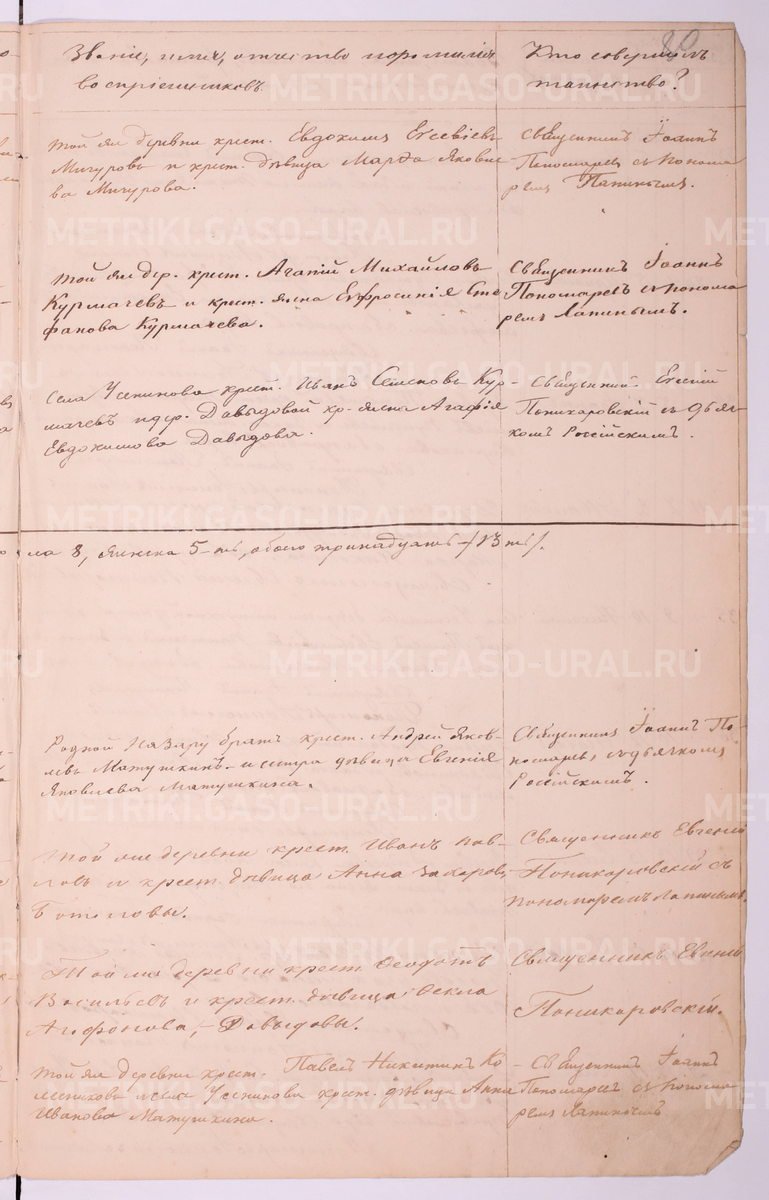 80
Званіе, имя, отчество и фамилія
воспріемниковъ.
Кто совершалъ
таинство?
Той же деревни крест. Евдокимъ Евсевіевъ
Мичуровъ и крест. дѣвица Марѳа Яковле
ва Мичурова.
Священникъ Іоаннъ
Пономаревъ съ понома
ремъ Лапинымъ.
Той же дер. крест. Агапій Михайловъ
Курмачевъ и крест. жена Евфросинія Сте
фанова Курмачева.
Священникъ Іоаннъ
Пономаревъ съ понома
ремъ Лапинымъ.
Села Усенинова крест. Иванъ Семеновъ Кур-
мачевъ и дер. Давыдовой кр. жена Агафія
Евдокимова Давыдова.
Священникъ Евгеній
Поникаровскій съ дьяч
комъ Россійскимъ.
ла 8, женска 5-ть, обоего тринадцать /13ть/.
Родной Назару братъ крест. Андрей Яков-
левъ Матушкинъ и сестра дѣвица Евгенія
Яковлева Матушкина.
Священникъ Іоаннъ По-
номаревъ, съ дьячкомъ
Россійскимъ.
Той же деревни крест. Иванъ Пав-
ловъ и крест. дѣвица Анна Захарова
Боталовы.
Священникъ Евгеній
Поникаровскій съ
пономаремъ Лапинымъ.
Той же деревни крест. Ѳеодотъ
Васильевъ и крест. дѣвица Ѳекла
Агафонова, Давыдовы.
Священникъ Евгеній
Поникаровскій.
Той же деревни крест. Павелъ Никитинъ Ко
лесниковъ и села Усенинова крест. дѣвица Анна
Иванова Матушкина.
Священникъ Іоаннъ
Пономаревъ съ понома
ремъ Лапинымъ
METRIKI.GASO-URAL.RU